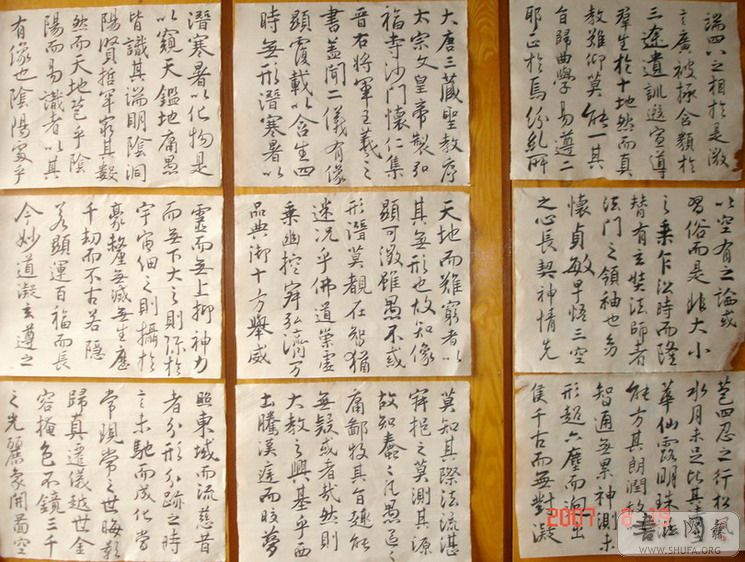 大唐三藏聖教序
太宗文皇帝製弘
福寺沙門懷仁集
晉右將軍王羲之
書蓋聞二儀有像
顯覆載以含生四
時無形潛寒暑以
潛寒暑以化物是
以窺天鑑地庸愚
皆識其端明陰洞
陽賢推罕窮其數
然而天地苞乎陰
陽而易識者以其
有像也陰陽處乎
天地而難窮者以
其無形也故知像
顯可徵雖愚不惑
形潛莫覩在智猶
迷况乎佛道崇虛
乘幽控寂弘濟万
品典御十方舉威
靈而無上抑神力
而無下大之則弥於
宇宙細之則攝於
豪釐無滅無生歷
千劫而不古若隱
若顯運百福而長
今妙道凝玄遵之
莫知其際法流湛
寂挹之莫測其源
故知蠢蠢凡愚區區
庸鄙投其旨趣能
無疑或者哉然則
大教之興基乎西
土騰漢庭而皎夢
照東域而流慈昔
者分形分跡之時
言未馳而成化當
常現常之世晦影
歸真遷儀越世金
容掩色不鏡三千
之光麗象開圖空
端四八之相於是微
言廣被拯含類於
三途遺訓遐宣導
群生於十地然而真
教難仰莫能一其
旨歸曲學易遵二
耶正於焉紛糺所
以空有之論或
習俗而是非大小
之乘乍沿時而隆
替有玄奘法師者
法門之領袖也幼
懷貞敏早悟三空
之心長契神情先
苞四忍之行松
水月未足比其清
華仙露明珠詎
能方其朗潤故
智通無累神測未
形超六塵而迥出
隻千古而無對凝
2007
書法网
WWW.SHUFA.ORG